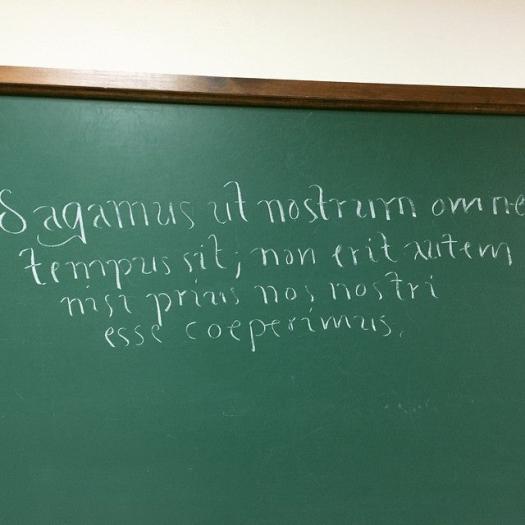 d agamus ut nostrum omne
tempus sit; non erit autem
nisi prius nos nostri
esse coeperimus.